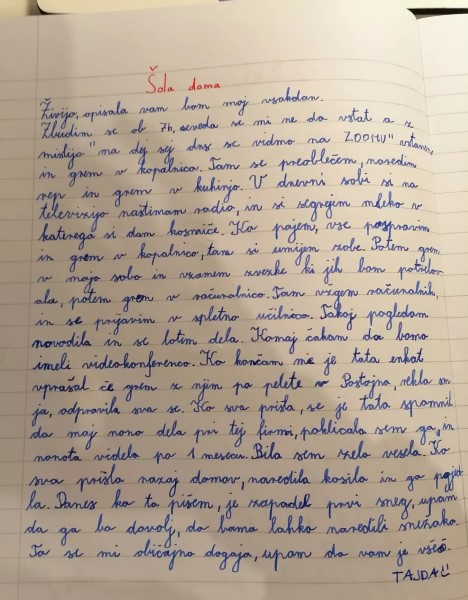 Šola doma
Živijo, opisala vam bom moj vsakdan.
Zbudim se ob 7h, seveda se mi ne da vstat a z
mislijo "ma dej sej dns se vidmo na ZOOMU" vstanem
in grem v kopalnico. Tam se preoblečem, naredim
rep in grem v kuhinjo. V dnevni sobi si na
televizijo naštimam radio, in si segrejem mleko v
katerega si dam kosmiče. Ko pojem, vse pospravim
in grem v kopalnico, tam si umijem zobe. Potem grem
v mojo sobo in vzamem zvezke ki jih bom potrebov-
ala, potem grem v računalnico. Tam vzgem računalnik,
in se prijavim v spletno učilnico. Takoj pogledam
navodila in se lotim dela. Komaj čakam da bomo
imeli videokonferenco. Ko končam me je tata enkat
vprašal če grem z njim po pelete v Postojno, rekla sm
ja, odpravila sva se. Ko sva prišla, se je tata spomnil
da moj nono dela pri tej firmi, poklicala sem ga, in
nonota videla po 1 mesecu. Bila sem zelo vesela. Ko
sva prišla nazaj domov, naredila kosilo in ga pojed-
la. Danes ko to pišem, je zapadel prvi sneg, upam
da ga bo dovolj, da bomo lahko naredili snežaka.
To se mi običajno dogaja, upam da vam je všeč.
TAJDA